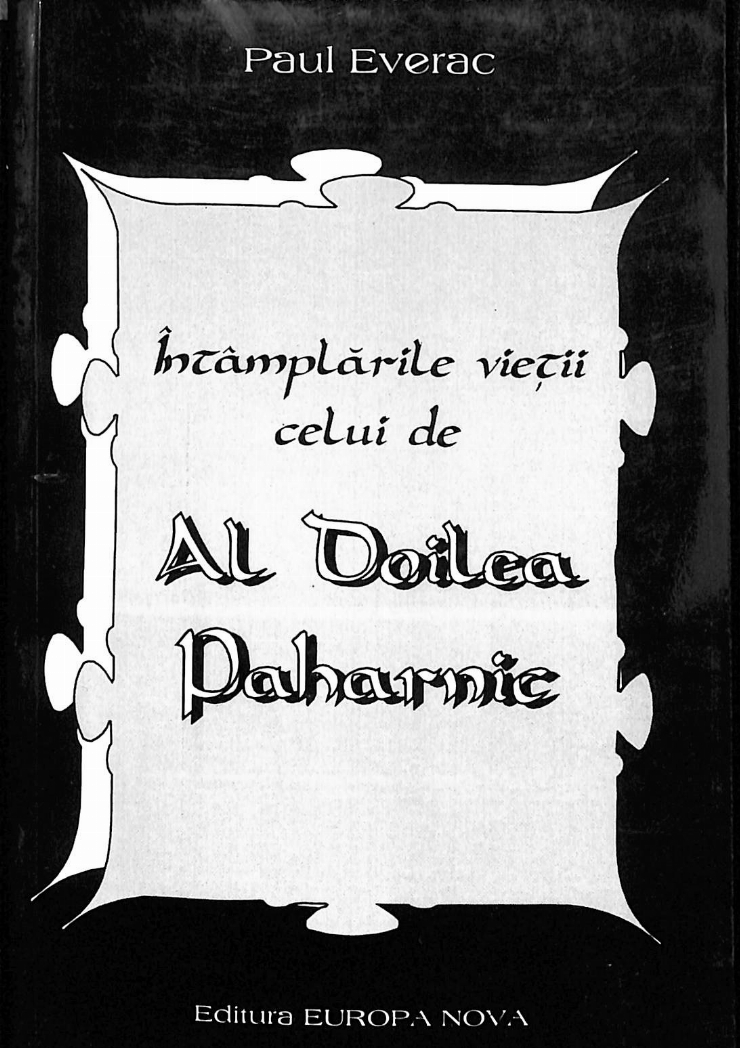 Paul Everac
Întâmplările vieții
celui de
Al Doilea
Paharnic
Editura EUROPA NOVA